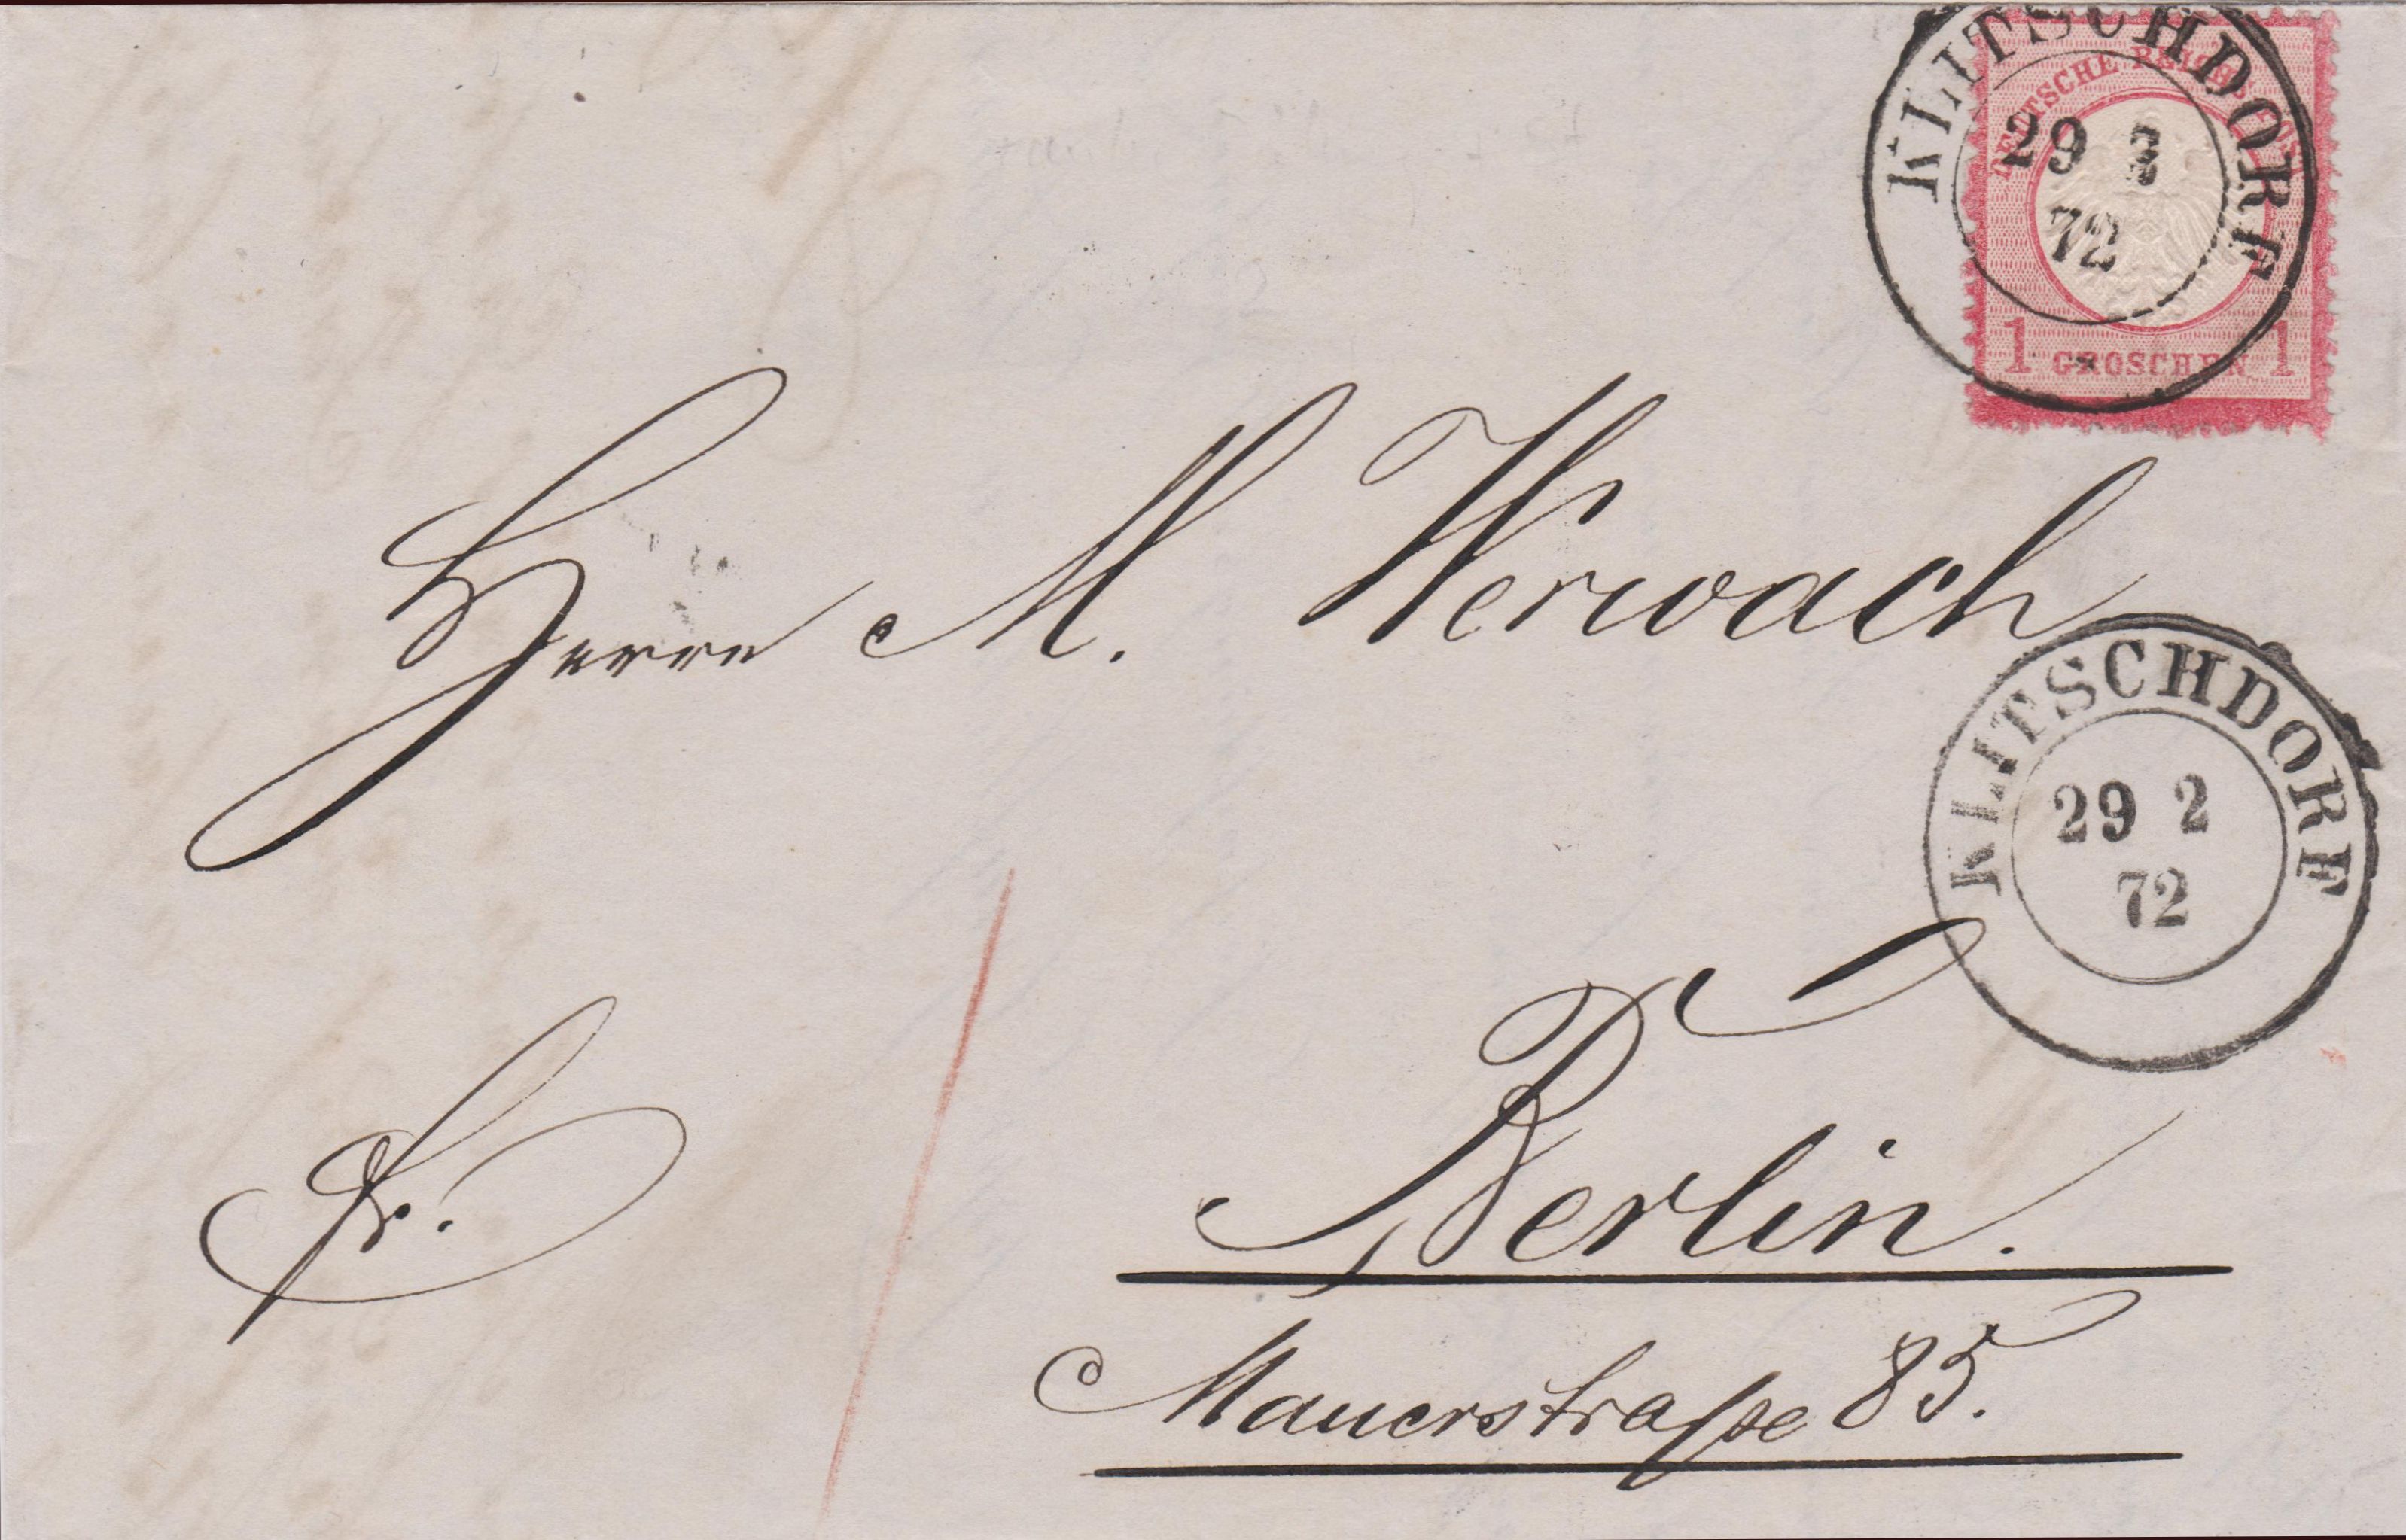 KLITSCHDORF
29 2
72
DEUTSCHE REICHS-POST
1 GROSCHEN 1
Herrn M. Werwach
KLITSCHDORF
29 2
72
Fr.
Berlin.
Mauerstraße 85.